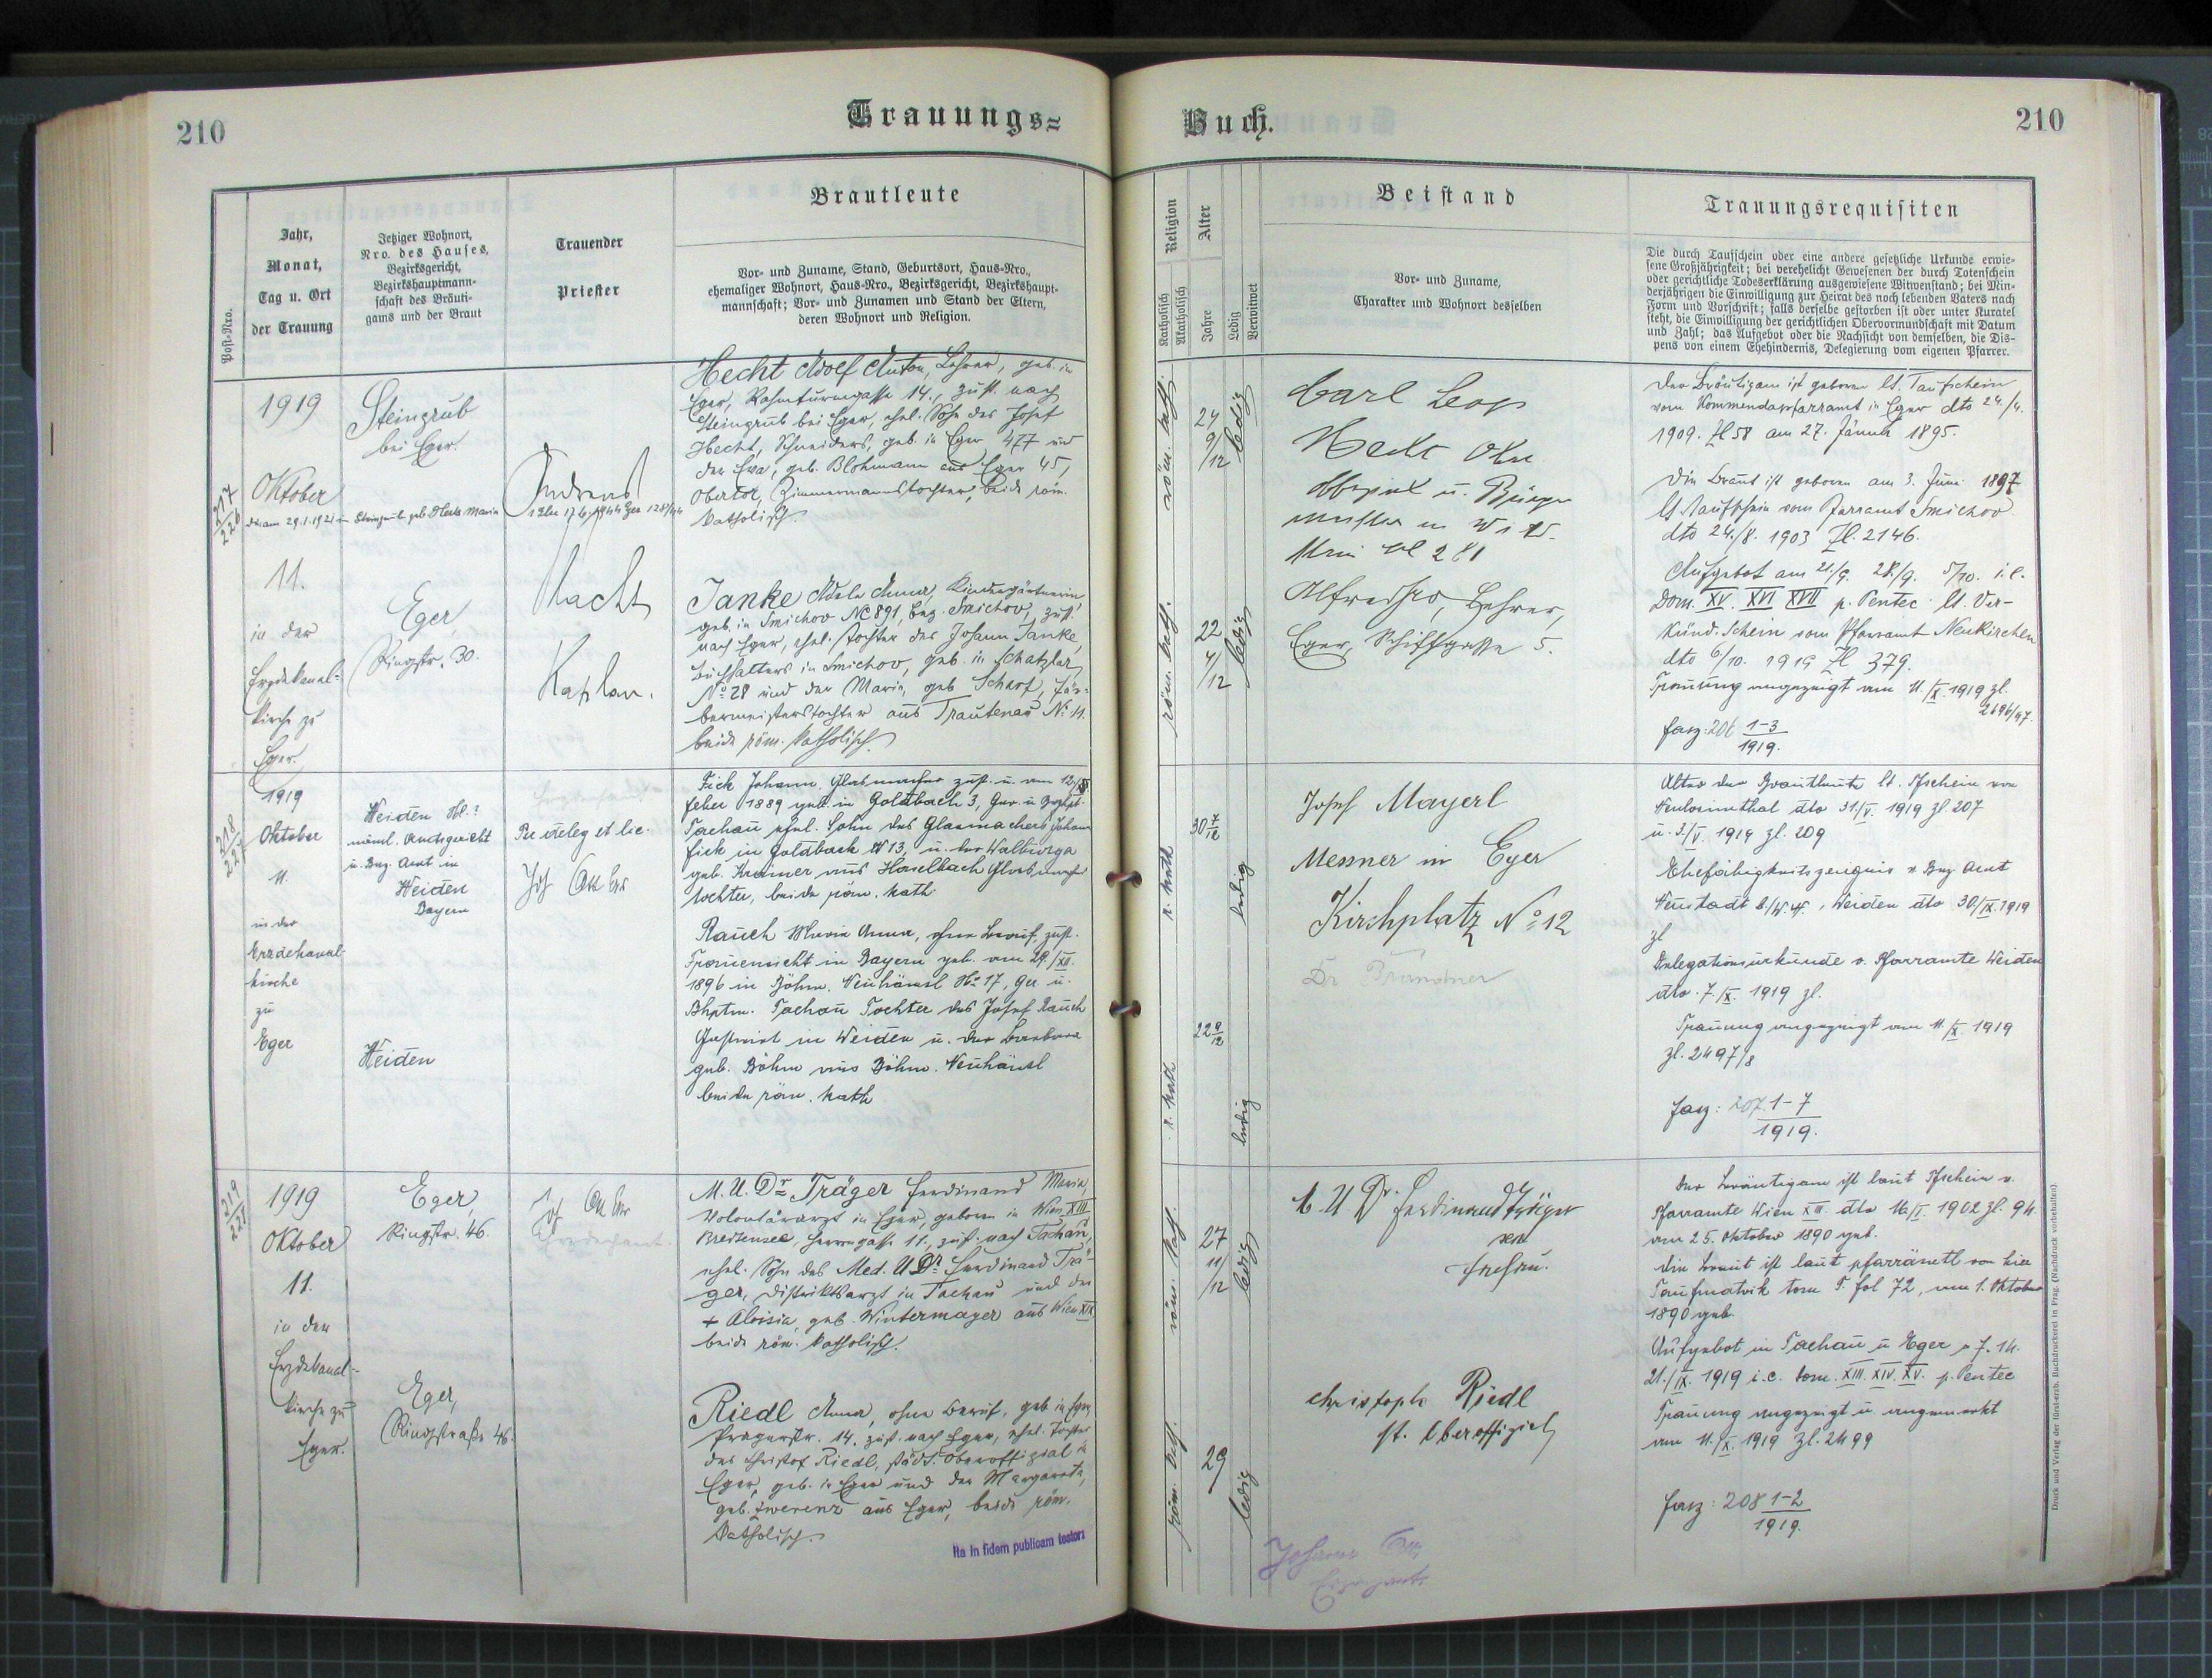 210
Trauungs=
Buch.
210
Post-Nro.
Jahr,
Monat,
Tag u. Ort
der Trauung
Jetziger Wohnort,
Nro. des Hauses,
Bezirksgericht,
Bezirkshauptmann-
schaft des Bräuti-
gams und der Braut
Trauender
Priester
Brautleute
Vor- und Zuname, Stand, Geburtsort, Haus-Nro.,
ehemaliger Wohnort, Haus-Nro., Bezirksgericht, Bezirkshaupt-
mannschaft; Vor- und Zunamen und Stand der Eltern,
deren Wohnort und Religion.
Religion
Katholisch
Akatholisch
Alter
Jahre
Ledig
Verwitwet
Beistand
Vor- und Zuname,
Charakter und Wohnort desselben
Trauungsrequisiten
Die durch Taufschein oder eine andere gesetzliche Urkunde erwie-
sene Großjährigkeit; bei verehelicht Gewesenen der durch Totenschein
oder gerichtliche Todeserklärung ausgewiesene Witwenstand; bei Min-
derjährigen die Einwilligung zur Heirat des noch lebenden Vaters nach
Form und Vorschrift; falls derselbe gestorben ist oder unter Kuratel
steht, die Einwilligung der gerichtlichen Obervormundschaft mit Datum
und Zahl; das Aufgebot oder die Nachsicht von demselben, die Dis-
pens von einem Ehehindernis, Delegierung vom eigenen Pfarrer.
217
226
1919
Oktober
11.
in der
Erzdekanal-
kirche zu
Eger.
Steingrub
bei Eger.
Eger,
Ringstr. 30.
Andreas
Macht
Kaplan.
Hecht Adolf Anton, Lehrer, geb. in
Eger, Bahnturmgasse 14., zust. nach
Steingrub bei Eger, ehel. Sohn des Josef
Hecht, Schneiders, geb. in Eger 477 und
der Eva, geb. Blohmann aus Eger 45,
Obertor, Zimmermannstochter, beide röm.
katholisch.
Janke Adele Anna, Kindergärtnerin,
geb. in Smichov NC 891, Bez. Smichov, zust.
nach Eger, ehel. Tochter des Johann Janke,
Buchhalters in Smichov, geb. in Schatzlar
No 28 und der Maria, geb. Scharf, Fär-
bermeisterstochter aus Trautenau No 11.
beide röm. katholisch.
röm. kath.
24
9/
/12
ledig
röm. kath.
22
4/
/12
ledig
Carl Leop
Alfred, Lehrer,
Eger, Schiffgasse 5.
Der Bräutigam ist geboren lt. Taufschein
vom Kommendapfarramt in Eger dto 24./4.
1909. Zl 58 am 27. Jänner 1895.
Die Braut ist geboren am 3. Juni 1897
lt. Taufschein vom Pfarramt Smichov
dto 24./8. 1903 Zl. 2146.
Aufgebot am 21./9. 28./9. 5/10. i.e.
Dom. XV. XVI XVII p. Pentec lt. Ver-
künd. Schein vom Pfarramt Neukirchen
dto 6/10. 1919 Zl 379.
Trauung angezeigt am 11./X. 1919 zl.
2496/97.
fasz: 206 1-3
1919.
218
227
1919
Oktober
11.
in der
Erzdekanal-
kirche
zu
Eger
Weiden
Amtsgericht
u. Bez. Amt in
Weiden
Bayern
Weiden
Per deleg et lic.
Fick Johann, Glasmacher zust. u. am 12./
feber 1889 geb. in Goldbach 3, Ger. u.
Tachau ehel. Sohn des Glasmachers Johann
Fick in Goldbach No 13, u. der Walburga
geb. Kramer aus Haselbach
tochter, beide röm. kath.
Rauch Maria Anna, ohne Beruf, zust.
in Bayern geb. am 29./XII.
1896 in Böhm. Neuhäusl No 17, Ger u.
Bhptm. Tachau Tochter des Josef Rauch
Gastwirt in Weiden u. der Barbara
geb. Böhm aus Böhm. Neuhäusl
beide röm. kath
r. kath
30 7/12
ledig
r. kath
22 9/12
ledig
Josef Mayerl
Messner in Eger
Kirchplatz No 12
Dr Brandner
Alter der Brautleute lt. Tfschein von
Neulosimthal dto 31./V. 1919 zl 207
u. 3./V. 1919 zl. 209
Ehefähigkeitszeugnis v. Bez. Amt
Neustadt b./W. N., Weiden dto 30/IX. 1919
zl
Delegationsurkunde v. Pfarramte Weiden
dto. 7./X. 1919 zl.
Trauung angezeigt am 11./X. 1919
zl. 2497/8
fasz: 207 1-7
1919.
219
228
1919
Oktober
11.
in der
Erzdekanal-
kirche zu
Eger.
Eger,
Ringstr. 46.
Eger,
Ringstraße 46.
M. U. Dr Träger Ferdinand Maria,
Volontärarzt in Eger, geboren in Wien XIII
Breitensee, Herrengasse 11., zust. nach Tachau,
ehel. Sohn des Med. U Dr. Ferdinand Trä-
ger, Distriktsarzt in Tachau und der
+ Aloisia, geb. Wintermayer aus Wien XIX
beide röm. katholisch.
Riedl Anna, ohne Beruf, geb. in Eger,
Pragerstr. 14, zust. nach Eger, ehel. Tochter
des Christof Riedl, städt. Oberoffizial in
Eger, geb. in Eger und der Margareta,
geb. Zwerenz aus Eger, beide röm.
katholisch.
Ita in fidem publicam testor:
röm. kath.
27
11/
/12
ledig
röm. kath.
29
ledig
M. U Dr. Ferdinand Träger
sen
Tachau.
Christoph Riedl
st. Oberoffizial
Der Bräutigam ist laut Tfschein v.
Pfarramte Wien XIII. dto 16/I. 1902 zl. 94
am 25. Oktober 1890 geb.
Die Braut ist laut pfarrämtl von hier
Taufmatrik tom T. fol 72, am 1. Oktober
1890 geb.
Aufgebot in Tachau u Eger a 7. 14.
21./IX. 1919 i.e. dom. XIII. XIV. XV. p. Pentec
Trauung angezeigt u angemerkt
am 11./X. 1919 Zl. 2499
fasz: 208 1-2
1919.
Druck und Verlag der fürst-erzb. Buchdruckerei in Prag. (Nachdruck vorbehalten).